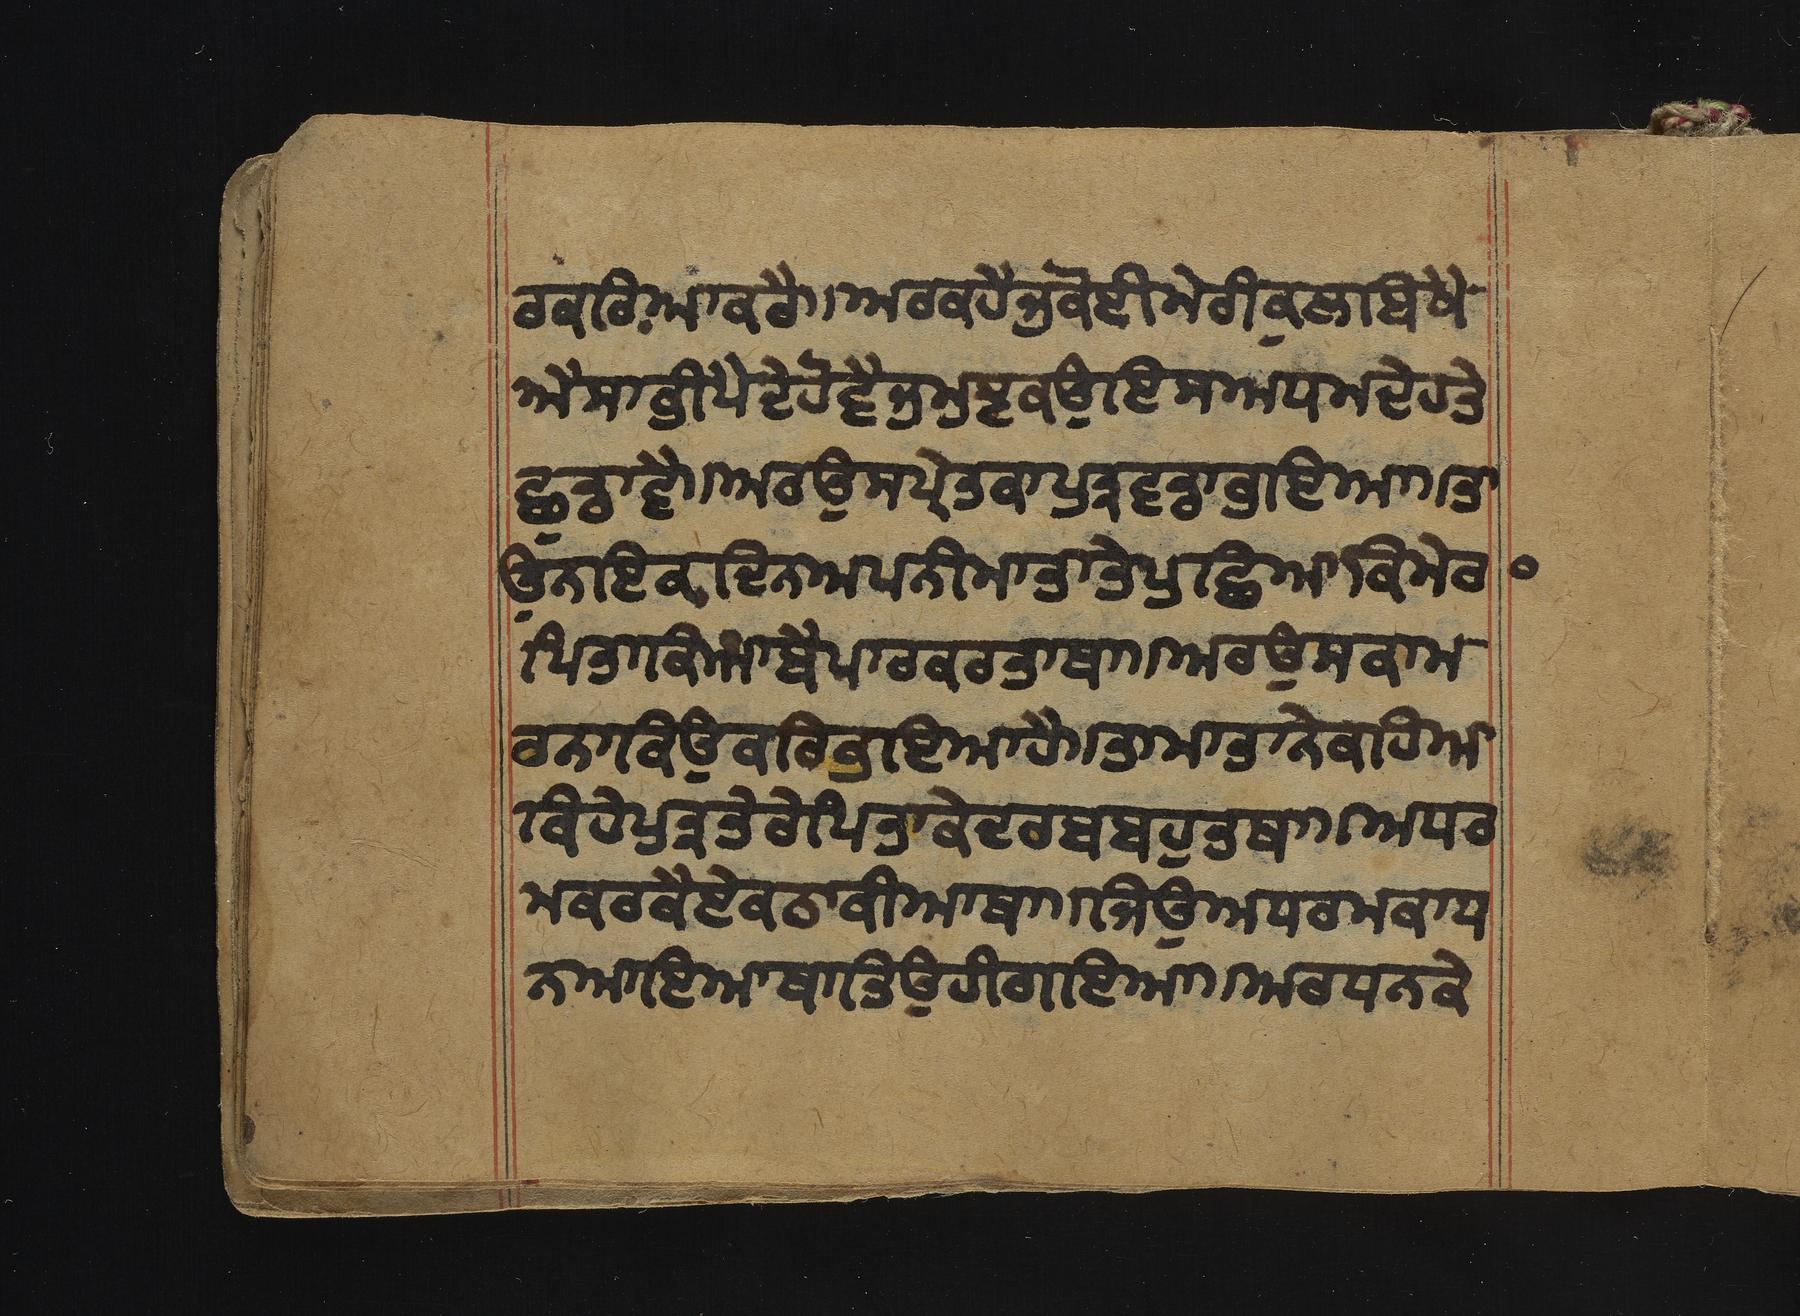 ਰਕਰਿਆਕਰੈ॥ਅਰਕਹੈਜੁਕੋਈਮੇਰੀਕੁਲਾਬਿਖੈ
ਐਸਾਭੀਪੈਦੇਹੋਵੈਜੁਮੁਝਕਉਇਸਅਧਮਦੇਹਤੇ
ਛੁਡਾਵੈ॥ਅਰਉਸਪ੍ਰੇਤਕਾਪੁਤ੍ਰਵਡਾਭਇਆ॥ਤਾ
ਉਨਇਕਦਿਨਅਪਨੀਮਾਤਾਤੇਪੁਛਿਆਕਿਮੇਰ
ਪਿਤਾਕਿਆਬੈਪਾਰਕਰਤਾਥਾ॥ਅਰਉਸਕਾਮ
ਰਨਾਕਿਉਕਰਿਭਇਆਹੈ॥ਤਾਮਾਤਾਨੇਕਹਿਆ
ਕਿਹੇਪੁਤ੍ਰਤੇਰੇਪਿਤਾਕੇਦਰਬਬਹੁਤਥਾ॥ਅਧਰ
ਮਕਰਕੈਏਕਠਾਕੀਆਥਾ॥ਜਿਉਅਧਰਮਕਾਧ
ਨਆਇਆਥਾਤਿਉਹੀਗਇਆ॥ਅਰਧਨਕੇ